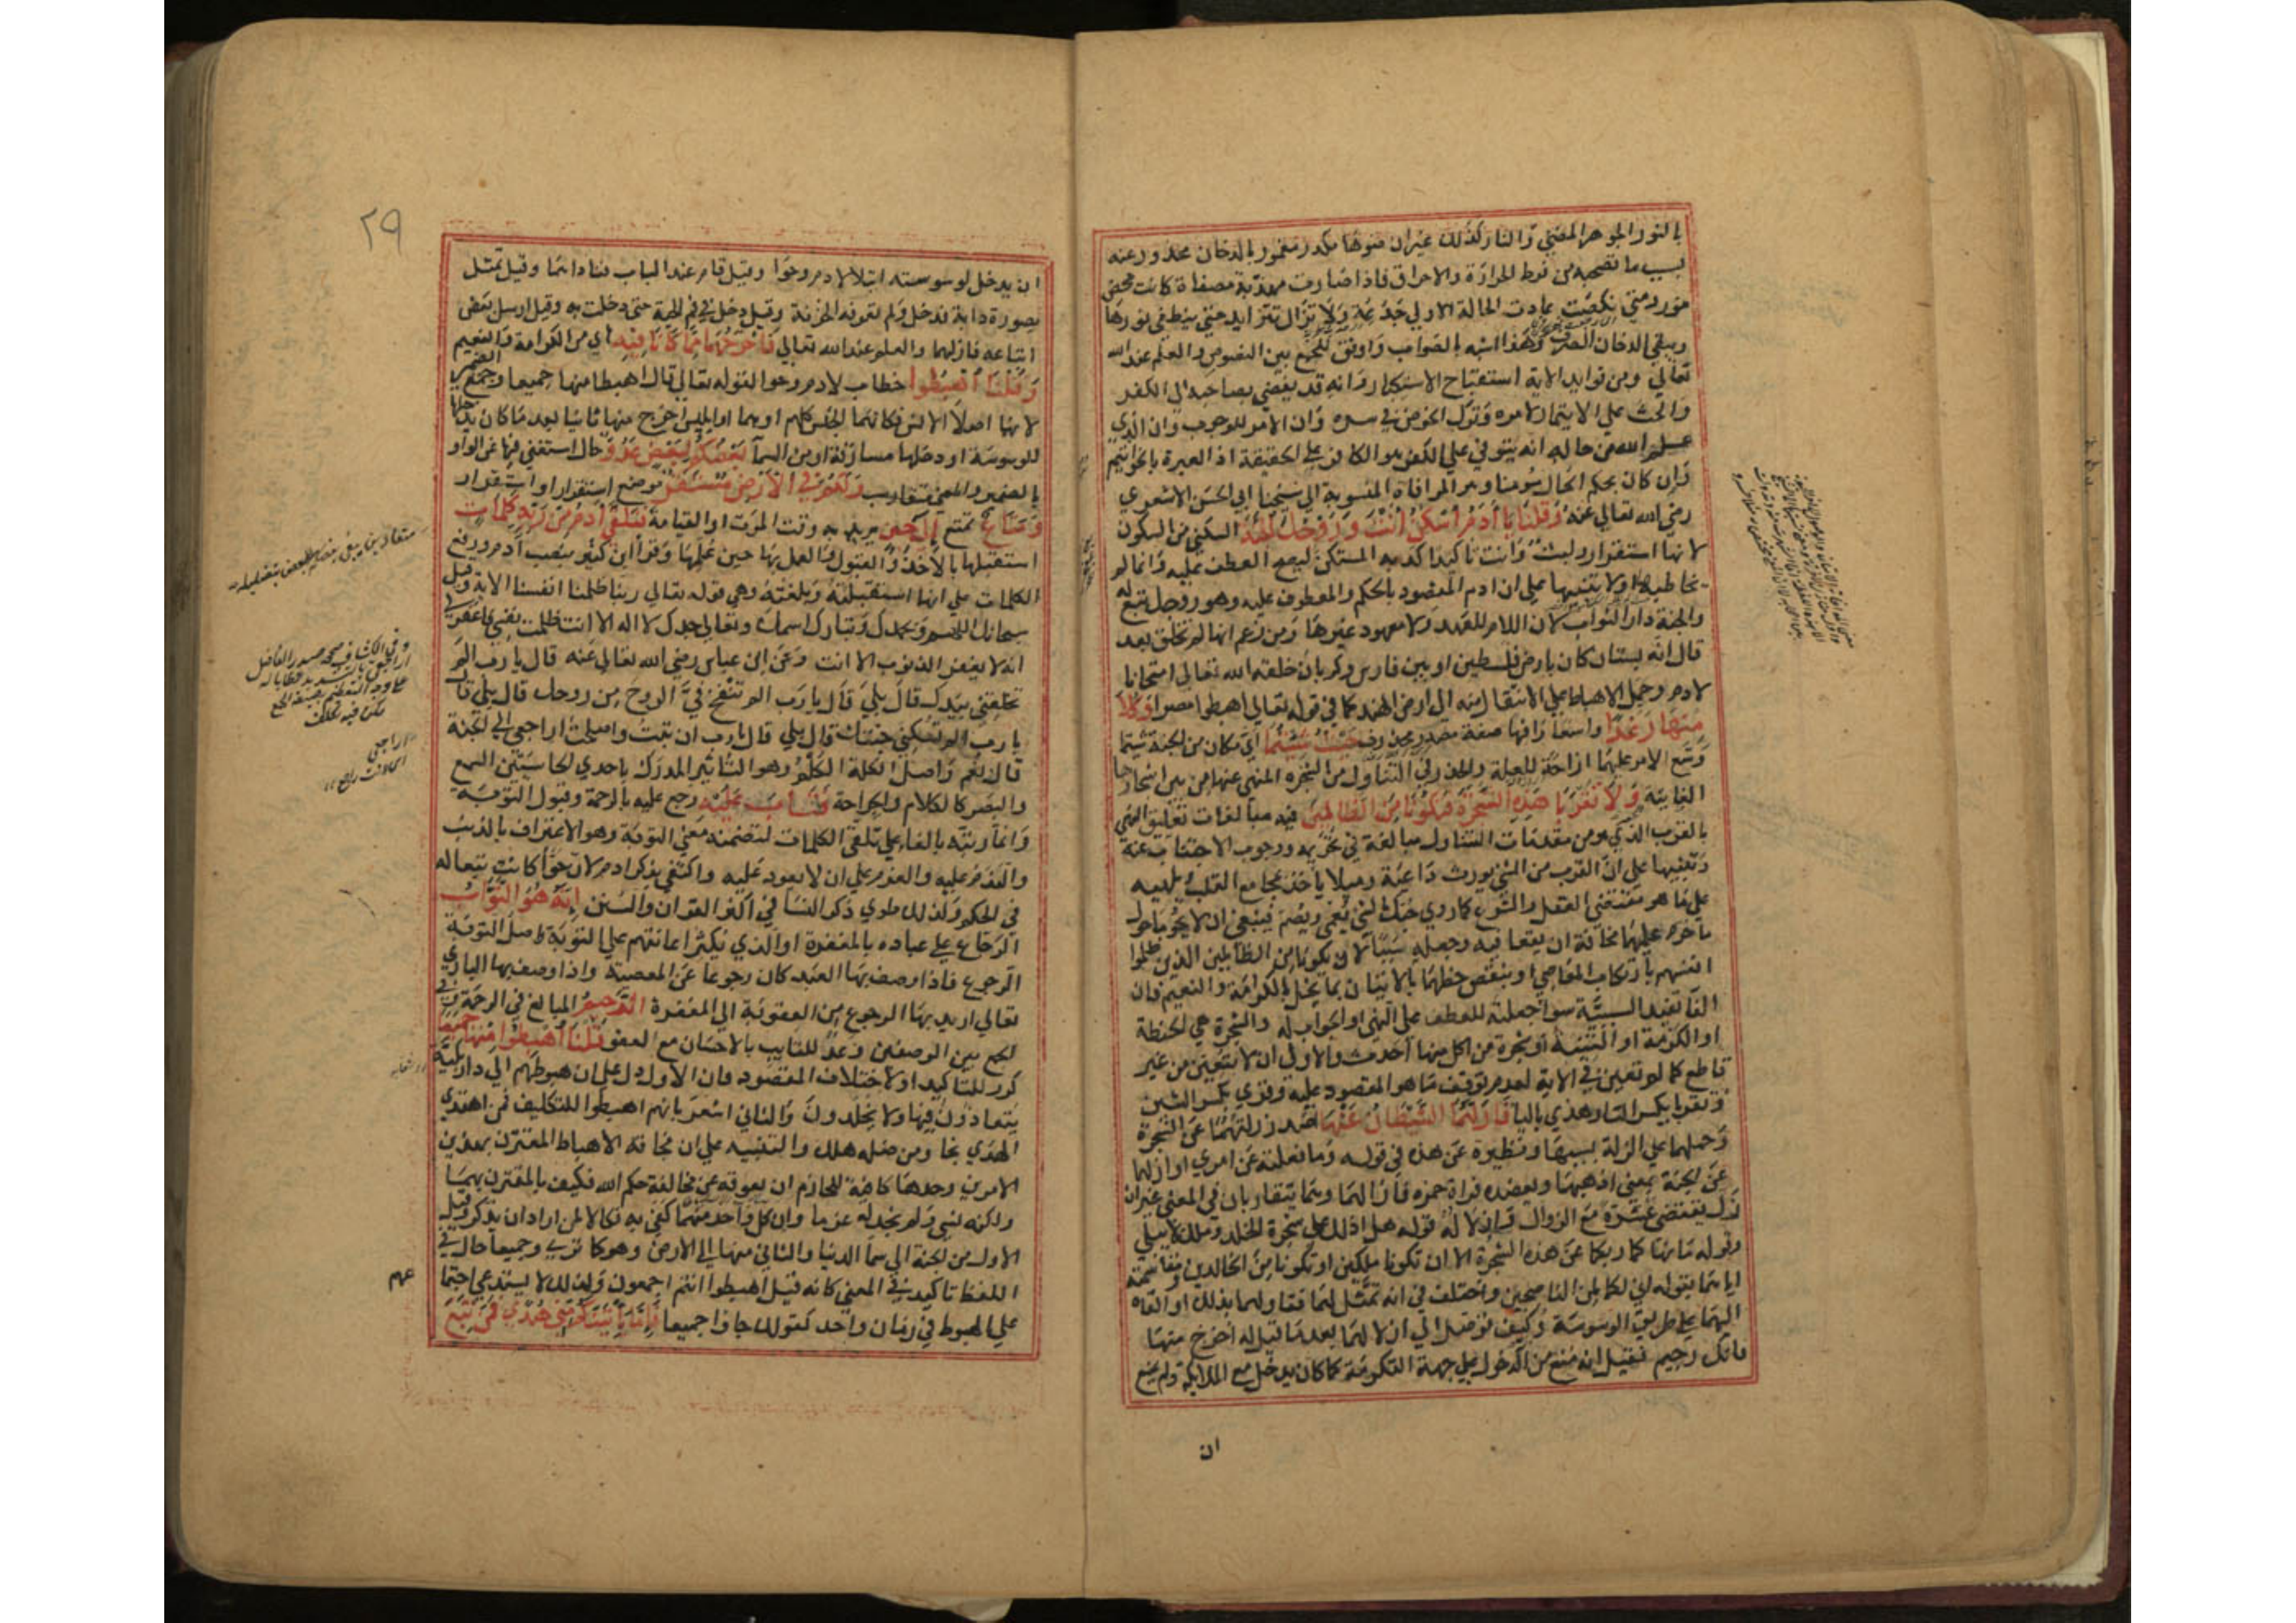 بالنور الجوهر المضي والنار كذلك غيران ضوها مكدر مغمور بالدخان محذور عنه
بسبب ما تصحبه من فرط الحرارة والاحراق فاذا صارت مهذبة مصفاة كانت محض
نور ومتي نكصت عادت الحالة الاولي جذعة ولا تزال تتزايد حتي ينطفي نورها
ويبقي الدخان الصرف وهذا اشبه بالصواب واوفق للجمع بين النصوص والعلم عند الله
تعالي ومن فوايد الاية استقباح الاستكبار وانه قد يفضي بصاحبه الي الكفر
والحث علي الايتمار لامره وترك الخوض في سره وان الامر للوجوب وان الذي
علم الله من حاله انه يتوفي علي الكفر هو الكافر علي الحقيقة اذ العبرة بالخواتيم
وان كان بحكم الحال مومنا وهو الموافاة المنسوبة الي شيخنا ابي الحسن الاشعري
رضي الله تعالي عنه وقلنا يا ادم اسكن انت وزوجك الجنة السكني من السكون
لانها استقرار ولبث وانت تاكيد اكد به المستكن ليصح العطف عليه وانما لم
يخاطبهما اولا تنبيها علي ان ادم المقصود بالحكم والمعطوف عليه وهو زوجك تبع له
والجنة دار الثواب لان اللام للعهد ولا معهود غيرها ومن زعم انها لم تخلق بعد
قال انه بستان كان بارض فلسطين او بين فارس وكرمان خلقه الله تعالي امتحانا
لادم وحمل الاهباط علي الانتقال منه الي ارض الهند كما في قوله تعالي اهبطوا مصرا وكلا
منها رغدا واسعا رافها صفة مصدر محذوف حيث شيتما اي مكان من الجنة شيتما
وسع الامر عليهما ازاحة للعلة والعذر في التناول من الشجرة المنهي عنها من بين اشجارها
الفايتة ولا تقربا هذه الشجرة فتكونا من الظالمين فيه مبالغات تعليق النهي
بالقرب الذي هو من مقدمات التناول مبالغة في تحريمه ووجوب الاجتناب عنه
وتنبيها علي ان القرب من الشي يورث داعية وميلا ياخذ بمجامع القلب ويلهيه
علي ما هو مقتضي العقل والشرع كما روي حبك الشي يعمي ويصم فينبغي ان لا يحوما حول
ما حرم عليهما مخافة ان يقعا فيه وجعله سببا لان يكونا من الظالمين الذين ظلموا
انفسهم بارتكاب المعاصي او بنقص حظهما بالاتيان بما يخل بالكرامة والنعيم فان
الفا تفيد السببية سوا جعلته للعطف علي النهي او الجواب له والشجرة هي الحنطة
او الكرمة او التينة او شجرة من اكل منها احدث والاولي ان لا تعين من غير
قاطع كما لم تعين في الاية لعدم توقف ما هو المقصود عليه وقري بكسر الشين
وتقربا بكسر التا وهذي باليا فازلهما الشيطان عنها اصدر زلتهما عن الشجرة
وحملهما علي الزلة بسببها ونظيره عن هذه في قوله وما فعلته عن امري او ازلهما
عن الجنة بمعني اذهبهما ويعضده قراة حمزه فازالهما وهما يتقاربان في المعني غيران
زل يقتضي عثرة مع الزوال وازلاله قوله هل ادلك علي شجرة الخلد وملك لا يبلي
وقوله ما نهاكما ربكما عن هذه الشجرة الا ان تكونا ملكين او تكونا من الخالدين ومقاسمته
اياهما بقوله اني لكما لمن الناصحين واختلف في انه تمثل لهما فقاولهما بذلك او القاه
اليهما علي طريق الوسوسة وكيف توصل الي ازلالهما بعد ما قيل له اخرج منها
فانك رجيم فقيل انه منع من الدخول علي جهة التكرمة كما كان يدخل مع الملايكة ولم يمنع
ان
٢٩
ان يدخل لوسوسته ابتلا لادم وحوا وقيل قام عند الباب فناداهما وقيل تمثل
بصورة دابة فدخل ولم تعرفه الخزنة وقيل دخل في فم الحية حتي دخلت به وقيل ارسل بعض
اتباعه فازلهما والعلم عند الله تعالي فاخرجهما مما كانا فيه اي من الكرامة والنعيم
وقلنا اهبطوا خطاب لادم وحوا لقوله تعالي قال اهبطا منها جميعا وجمع الضمير
لانهما اصلا الانس فكانهما الجنس كلهم او هما وابليس اخرج منها ثانيا بعد ما كان يدخلها
للوسوسة او دخلها مسارقة او من السمآ بعضكم لبعض عدو حال استغني فيها عن الواو
بالضمير والمعني متعادين ولكم في الارض مستقر موضع استقرار او استقرار
ومتاع تمتع الي حين يريد به وقت الموت او القيامة فتلقي ادم من ربه كلمات
استقبلها بالاخذ والقبول والعمل بها حين علمها وقرا ابن كثير بنصب آدم ورفع
الكلمات علي انها استقبلته وبلغته وهي قوله تعالي ربنا ظلمنا انفسنا الاية وقيل
سبحانك اللهم وبحمدك وتبارك اسمك وتعالي جدك لا اله الا انت ظلمت نفسي فاغفر لي
انه لا يغفر الذنوب الا انت وعن ابن عباس رضي الله تعالي عنه قال يا رب الم
تخلقني بيدك قال بلي قال يا رب الم تنفخ في الروح من روحك قال بلي قال
يا رب الم تسكني جنتك قال بلي قال يا رب ان تبت واصلحت اراجعي الي الجنة
قال نعم واصل الكلمة الكلم وهو التاثير المدرك باحدي الحاستين السمع
والبصر كالكلام والجراحة فتاب عليه رجع عليه بالرحمة وقبول التوبة
وانما رتبه بالفا علي تلقي الكلمات لتضمنه معني التوبة وهو الاعتراف بالذنب
والندم عليه والعزم علي ان لا يعود عليه واكتفي بذكر ادم لان حوا كانت تبعا له
في الحكم ولذلك طوي ذكر النسا في اكثر القران والسنن انه هو التواب
الرجاع علي عباده بالمغفرة او الذي يكثر اعانتهم علي التوبة واصل التوبة
الرجوع فاذا وصف بها العبد كان رجوعا عن المعصية واذا وصف بها الباري
تعالي اريد بها الرجوع من العقوبة الي المغفرة الرحيم المبالغ في الرحمة وفي
الجمع بين الوصفين وعد للتايب بالاحسان مع العفو قلنا اهبطوا منها جميعا
كرر للتاكيد او لاختلاف المقصود فان الاول دل علي ان هبوطهم الي دار بلية
يتعادون فيها ولا يخلدون والثاني اشعر بانهم اهبطوا للتكليف فمن اهتدي
الهدي نجا ومن ضله هلك والتنبيه علي ان مخافة الاهباط المقترن بهذين
الامرين وحدها كافية للحازم ان يعوقه عن مخالفة حكم الله فكيف بالمقترن بهما
ولكنه نسي ولم نجد له عزما وان كل واحد منهما كفي به نكالا لمن اراد ان يذكر وقيل
الاول من الجنة الي سما الدنيا والثاني منها الي الارض وهو كما تري وجميعا حال في
اللفظ تاكيد في المعني كانه قيل اهبطوا انتم اجمعون ولذلك لا يستدعي اجتما
عهم
علي الهبوط في زمان واحد كقولك جاوا جميعا فاما ياتينكم مني هدي فمن تبع